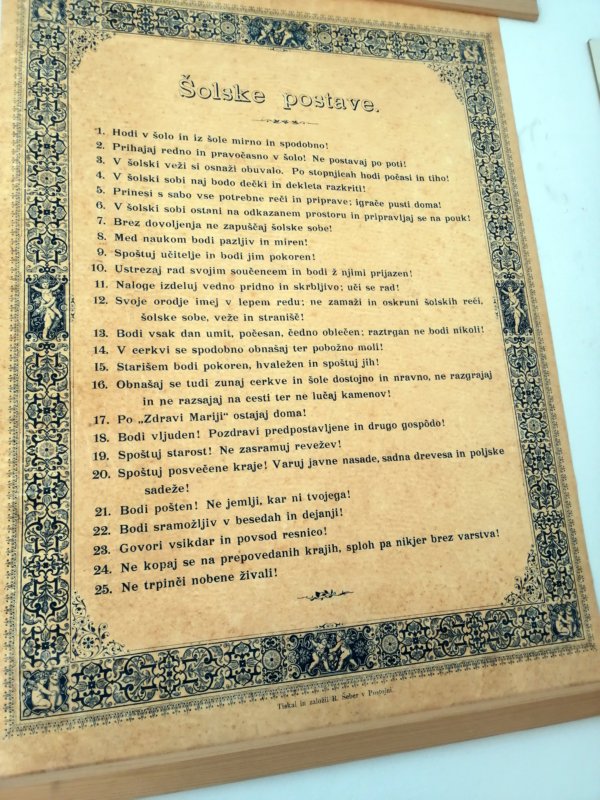 Šolske postave.
1. Hodi v šolo in iz šole mirno in spodobno!
2. Prihajaj redno in pravočasno v šolo! Ne postavaj po poti!
3. V šolski veži si osnaži obuvalo. Po stopnjicah hodi počasi in tiho!
4. V šolski sobi naj bodo dečki in dekleta razkriti!
5. Prinesi s sabo vse potrebne reči in priprave; igrače pusti doma!
6. V šolski sobi ostani na odkazanem prostoru in pripravljaj se na pouk!
7. Brez dovoljenja ne zapuščaj šolske sobe!
8. Med naukom bodi pazljiv in miren!
9. Spoštuj učitelje in bodi jim pokoren!
10. Ustrezaj rad svojim součencem in bodi ž njimi prijazen!
11. Naloge izdeluj vedno pridno in skrbljivo; uči se rad!
12. Svoje orodje imej v lepem redu; ne zamaži in oskruni šolskih reči,
šolske sobe, veže in stranišč!
13. Bodi vsak dan umit, počesan, čedno oblečen; raztrgan ne bodi nikoli!
14. V cerkvi se spodobno obnašaj ter pobožno moli!
15. Starišem bodi pokoren, hvaležen in spoštuj jih!
16. Obnašaj se tudi zunaj cerkve in šole dostojno in nravno, ne razgrajaj
in ne razsajaj na cesti ter ne lučaj kamenov!
17. Po „Zdravi Mariji“ ostajaj doma!
18. Bodi vljuden! Pozdravi predpostavljene in drugo gospôdo!
19. Spoštuj starost! Ne zasramuj revežev!
20. Spoštuj posvečene kraje! Varuj javne nasade, sadna drevesa in poljske
sadeže!
21. Bodi pošten! Ne jemlji, kar ni tvojega!
22. Bodi sramožljiv v besedah in dejanji!
23. Govori vsikdar in povsod resnico!
24. Ne kopaj se na prepovedanih krajih, sploh pa nikjer brez varstva!
25. Ne trpinči nobene živali!
Tiskal in založil R. Šeber v Postojni.